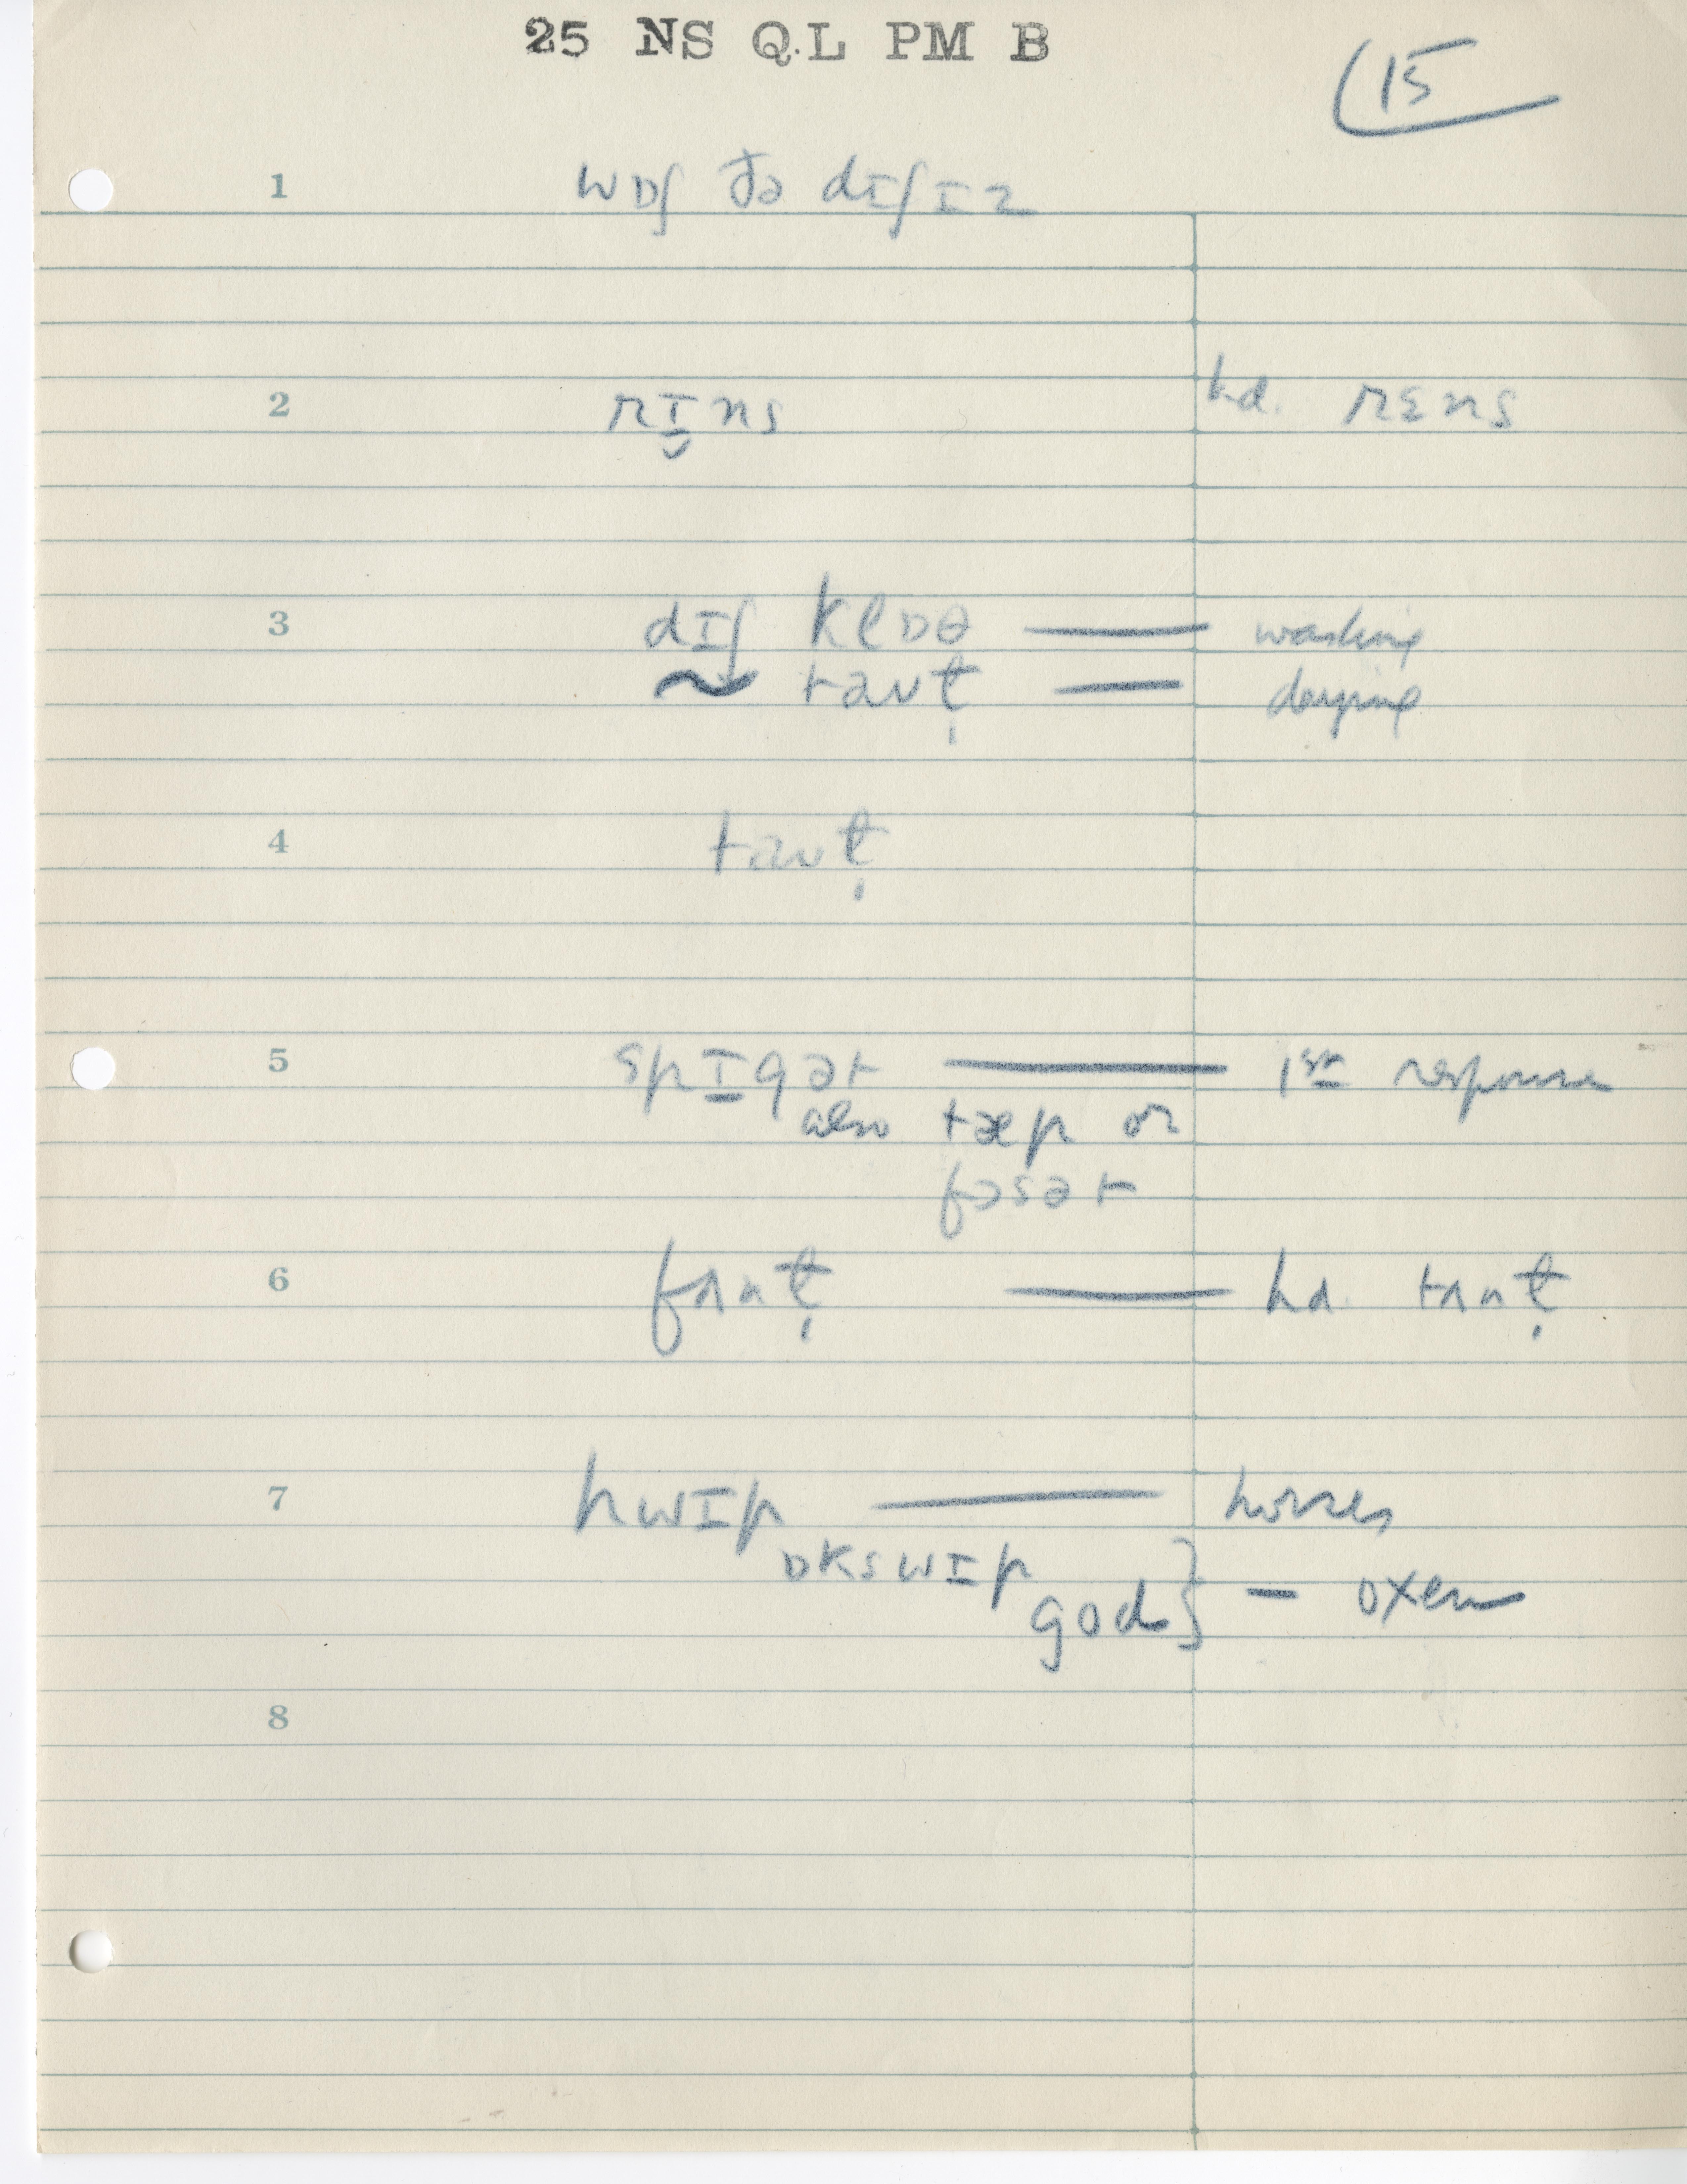 25 NS QL PM B
15
1 wɒʃ ðə dɪʃɪz
2 rɪ̬ns hd. rɛns
3 dɪʃ klɒθ — washing
~ taʊt̬ — drying
4 taʊt̬
5 spɪgət — 1st response
also tæp or
fɔsət
6 fʌnt̬ — hd. tʌnt̬
7 hwɪp — horses
ɒkswɪp
god } — oxen
8